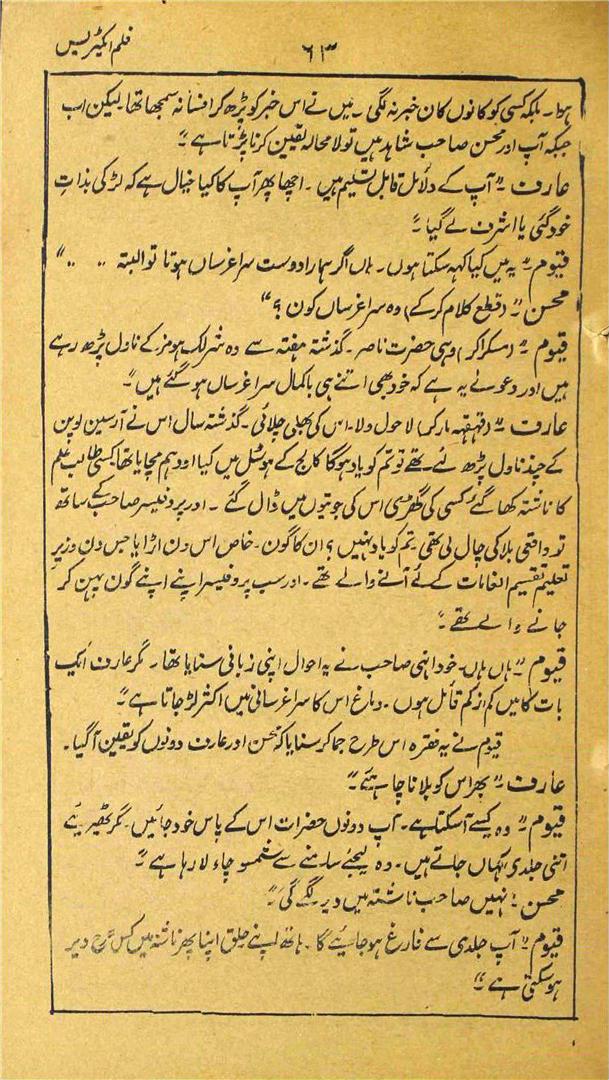 فلم ایکٹریس
۶۳
ہوا۔ بلکہ کسی کو کانوں کان خبر نہ لگی۔ میں نے اس خبر کو پڑھ کر افسانہ سمجھا تھا لیکن اب
جبکہ آپ اور محسن صاحب شاہد ہیں تو لا محالہ یقین کرنا پڑتا ہے“
عارف ”آپ کے دلائل قابل تسلیم ہیں۔ اچھا پھر آپ کا کیا خیال ہے کہ لڑکی بذاتِ
خود گئی یا اشرف لے گیا“
قیوم ”یہ میں کیا کہہ سکتا ہوں۔ ہاں اگر ہمارا دوست سراغرساں ہوتا تو البتہ .. ..“
محسن ”(قطع کلام کر کے) وہ سراغرساں کون؟“
قیوم ”(مسکرا کر) وہی حضرت ناصر۔ گذشتہ ہفتہ سے وہ شرلک ہومز کے ناول پڑھ رہے
ہیں اور دعوےٰ یہ ہے کہ خود بھی اتنے ہی باکمال سراغرساں ہو گئے ہیں“
عارف ”(قہقہہ مار کر) لا حول ولا۔ اس کی بھلی چلائی۔ گذشتہ سال اس نے آرسین لوپن
کے چند ناول پڑھ لئے تھے تو تم کو یاد ہوگا کالج کے ہوسٹل میں کیا اودہم مچایا تھا کسی طالب علم
کا ناشتہ کھا گئے کسی کی گھڑی اس کی جوتیوں میں ڈال گئے۔ اور پروفیسر صاحب کے ساتھ
تو واقعی بلا کی چال لی تھی۔ تم کو یاد نہیں؟ ان کا گون۔ خاص اس دن اڑایا جس دن وزیر
تعلیم تقسیم انعامات کے لئے آنے والے تھے۔ اور سب پروفیسر اپنے اپنے گون پہن کر
جانے والے تھے۔“
قیوم ”ہاں ہاں۔ خود انہی صاحب نے یہ احوال اپنی زبانی سنایا تھا۔ مگر عارف ایک
بات کا میں کم از کم قائل ہوں۔ دماغ اس کا سراغرسانی میں اکثر لڑ جاتا ہے“
قیوم نے یہ فقرہ اس طرح جما کر سنایا کہ محسن اور عارف دونوں کو یقین آ گیا۔
عارف ”پھر اس کو بلانا چاہئے“
قیوم ”وہ کیسے آسکتا ہے۔ آپ دونوں حضرات اس کے پاس خود جائیں۔ مگر ٹھیریئے
اتنی جلدی کہاں جاتے ہیں۔ وہ لیجئے سامنے سے شمسو چاء لا رہا ہے“
محسن ”نہیں صاحب ناشتہ میں دیر لگے گی“
قیوم ”آپ جلدی سے فارغ ہو جائیے گا۔ ہاتھ اپنے حلق اپنا پھر ناشتہ میں کس طرح دیر
ہو سکتی ہے“